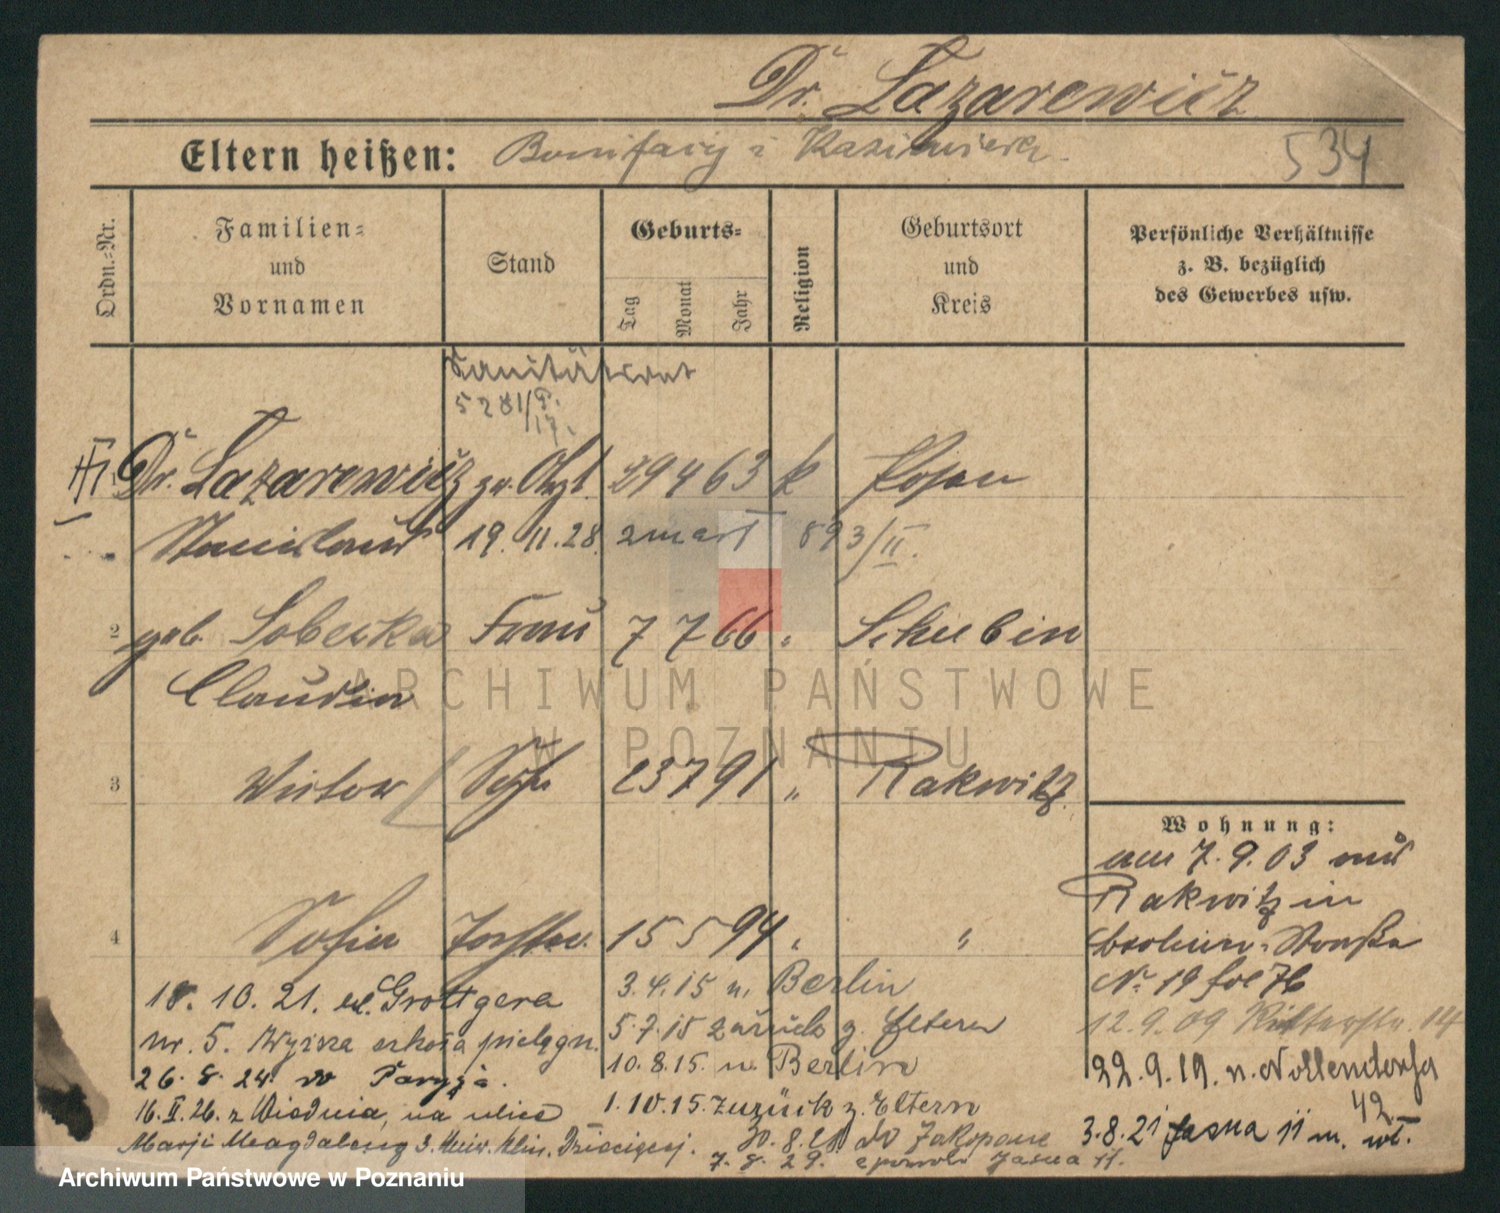 Dr. Lazarewicz
Eltern heißen: Bonifacy i Kazimiera
534
Ordn.-Nr.
Familien- und Vornamen
Stand
Geburts-
Tag
Monat
Jahr
Religion
Geburtsort und Kreis
Persönliche Verhältnisse z. B. bezüglich des Gewerbes usw.
Sanitätsrat
5281/P. 17.
Dr. Lazarewicz pr. Arzt 29 4 63 k Posen
Stanislaus 19. 11. 28. zmarł 893/II.
2 geb. Sobecka Frau 7 7 66 " Schubin
Claudia
3 Victor Sohn 23 7 91 " Rakwitz
4 Sofia Tochter 15 5 94 " "
Wohnung:
am 7. 9. 03 aus
Rakwitz in
Straße
No 19 fol 76
12. 9. 09 Ritterstr. 14
22. 9. 19. n. Nollendorfa
42
3. 8. 21 Jasna 11 m. wł.
18. 10. 21. ul. Grottgera
nr. 5. Wyższa szkoła pielęgn.
26. 8. 24. do Paryża.
16. II. 26. z Wiednia, na ulicę
Marji Magdaleny 3. Uniw. Klin. Dziecięcej.
3. 4. 15 n. Berlin
5. 7. 15 zurück z. Eltern
10. 8. 15. n. Berlin
1. 10. 15. zurück z. Eltern
30. 8. 21 do Zakopane
7. 8. 29. z powrotem Jasna 11.
ARCHIWUM PAŃSTWOWE
W POZNANIU
Archiwum Państwowe w Poznaniu